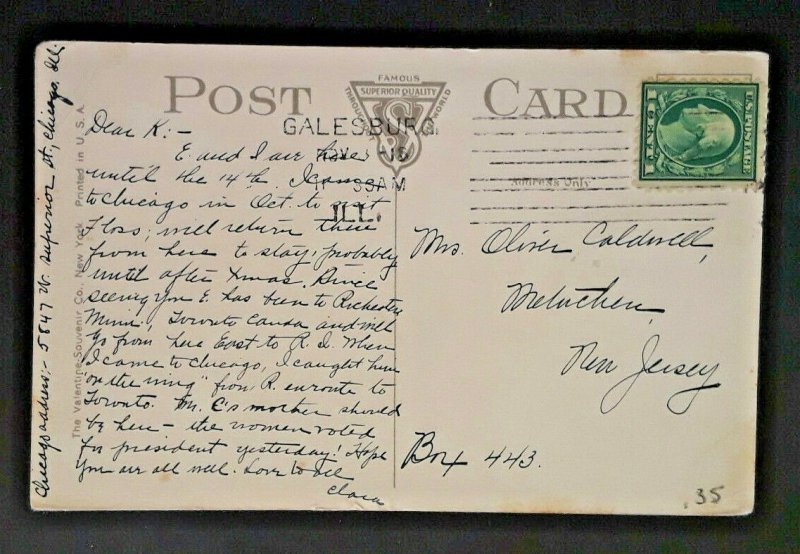 POST CARD
FAMOUS
SUPERIOR QUALITY
THROUGHOUT
WORLD
GALESBURG
ILL.
Address Only
U.S. POSTAGE
1 CENT 1
Dear K:-
E and I are here
until the 14th I came
to Chicago in Oct. to visit
Floss; will return there
from here to stay, probably
until after Xmas. Since
seeing you E. has been to Rochester,
Minn., Toronto Canda and will
go from here East to R. I. When
I came to Chicago, I caught him
"on the wing" from R. enroute to
Toronto. Mr. C's mother should
be here - the women voted
for president yesterday! Hope
you are all well. Love to all
Clara
Chicago address:- 5847 W. Superior st, Chicago, Ill.
The Valentine-Souvenir Co., New York Printed in U. S. A.
Mrs. Oliver Caldwell,
Metuchen,
New Jersey
Box 443.
.35